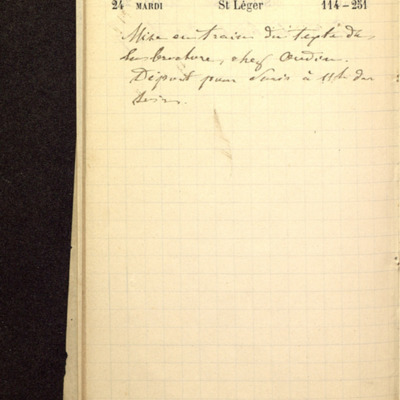 24 MARDI St Léger 114-251
Mise en train du texte de
la brochure, chez Oudin.
Départ pour Paris à 11h du
soir.